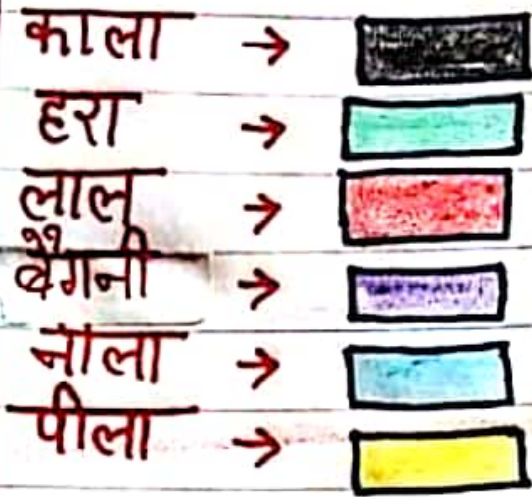 काला →
हरा →
लाल →
बैंगनी →
नीला →
पीला →